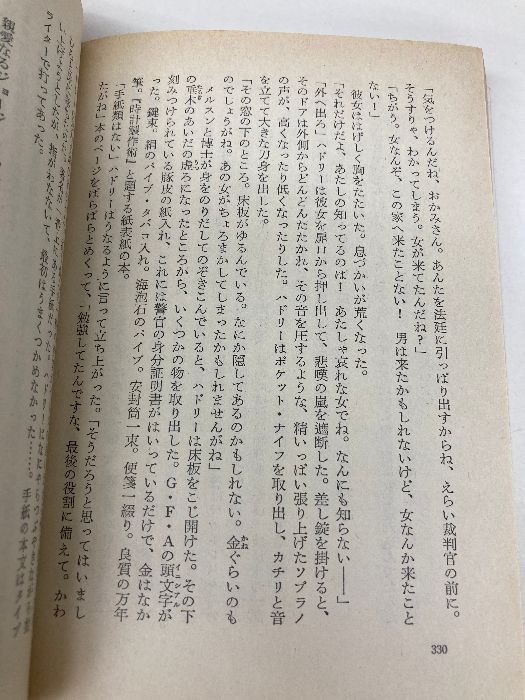 「気をつけるんだね、おかみさん。あんたを法廷に引っぱり出すからね、えらい裁判官の前に。
そうすりゃ、わかってしまう。女が来てたんだね?」
「ちがう。女なんぞ、この家へ来たことない! 男は来たかもしれないけど、女なんか来たこと
ない!」
彼女ははげしく胸をたたいた。息づかいが荒くなった。
「それだけだよ、あたしの知ってるのは! あたしゃ哀れな女でね。なんにも知らない――」
「外へ出ろ」ハドリーは彼女を扉口から押し出して、悲嘆の嵐を遮断した。差し錠を掛けると、
そのドアは外側からどんどんたたかれ、その音を圧するような、精いっぱい張り上げたソプラノ
の声が、高くなったり低くなったりした。ハドリーはポケット・ナイフを取り出し、カチリと音
を立てて大きな刀身を出した。
「その窓の下のところ。床板がゆるんでいる。なにか隠してあるのかもしれない。金ぐらいのも
のでしょうがね。あの女がちょろまかしてしまったかもしれませんがね」
メルスンと博士が身をのりだしてのぞきこんでいると、ハドリーは床板をこじ開けた。その下
の垂木のあいだの虚ろになったところから、いくつかの物を取り出した。G・F・Aの頭文字が
刻みつけられている豚皮の紙入れ、これには警官の身分証明書がはいっているだけで、金はなか
った。鍵束。絹のパイプ・タバコ入れ。海泡石のパイプ。安封筒一束。便箋一綴り。良質の万年
筆。『時計製作術』と題する紙表紙の本。
「手紙類はない」ハドリーはうなるように言って立ち上がった。「そうだろうと思ってはいまし
たがね」本のページをぱらぱらとめくって、「勉強してたんですな、最後の役割に備えて。かわ
最初はうまくつかめなかった……。手紙の本文はタイプ
ライターで打ってあった。
親愛なるジョージ
330